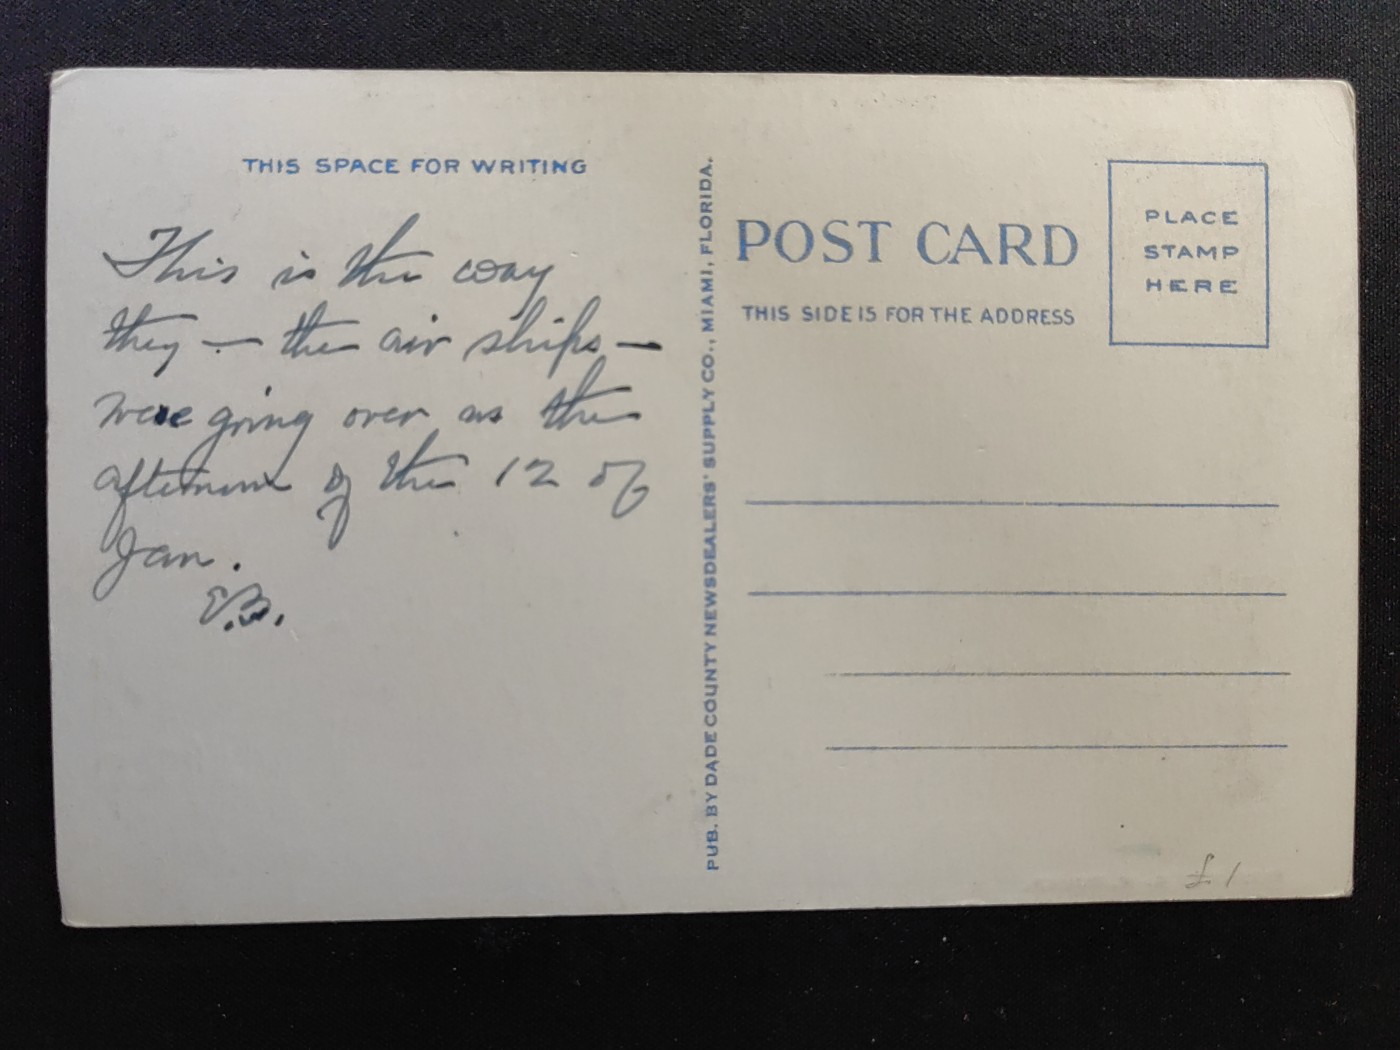 THIS SPACE FOR WRITING
This is the way
they — the air ships —
were going over as the
afternoon of the 12 of
Jan.
E.B.
PUB. BY DADE COUNTY NEWSDEALERS' SUPPLY CO., MIAMI, FLORIDA.
POST CARD
THIS SIDE IS FOR THE ADDRESS
PLACE
STAMP
HERE
£1